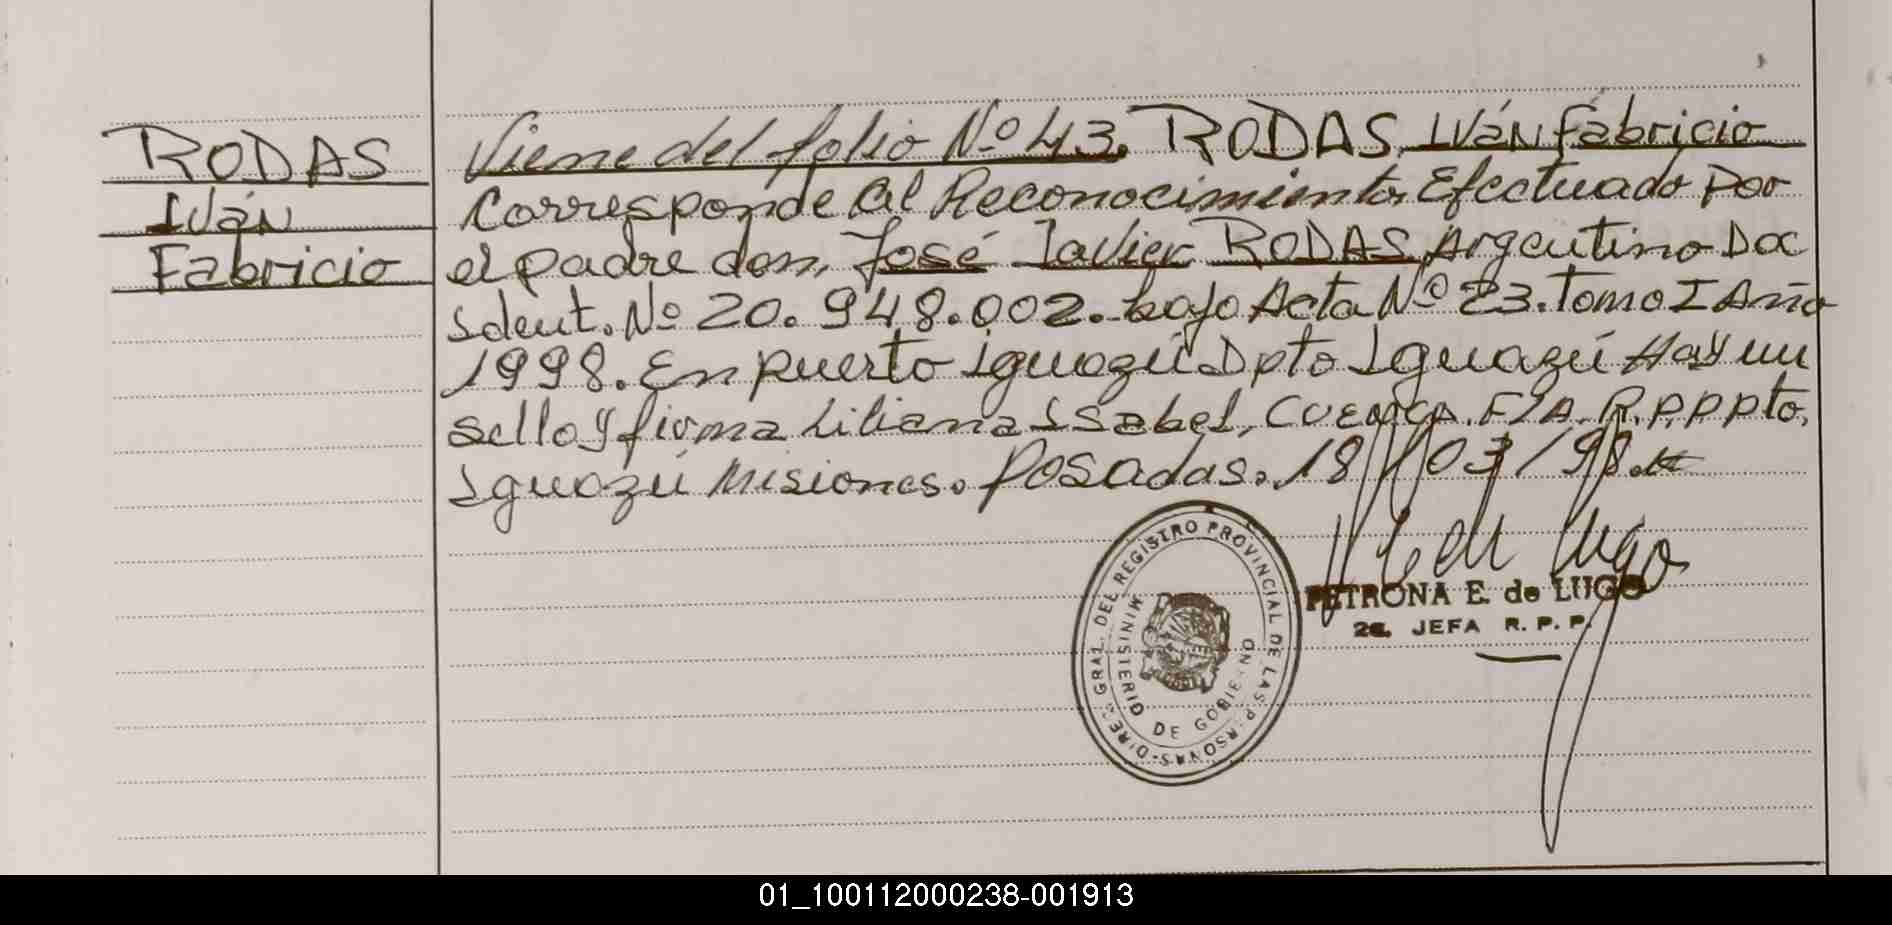 RODAS
Iván
Fabricio
Viene del folio Nº 43. RODAS, Iván Fabricio
Corresponde al Reconocimiento Efectuado Por
el padre don, José Javier RODAS Argentino Doc
Ident. Nº 20.948.002. bajo Acta Nº 23. Tomo I Año
1998. En puerto iguazú Dpto Iguazú Hay un
sello y firma Liliana Isabel, CUENCA. F/A. R.P.P Pto,
Iguazú Misiones. Posadas. 18/03/98.
PETRONA E. de LUGO
2a. JEFA R. P. P.
DIREC. GRAL. DEL REGISTRO PROVINCIAL DE LAS PERSONAS-
MINISTERIO DE GOBIERNO
01_100112000238-001913